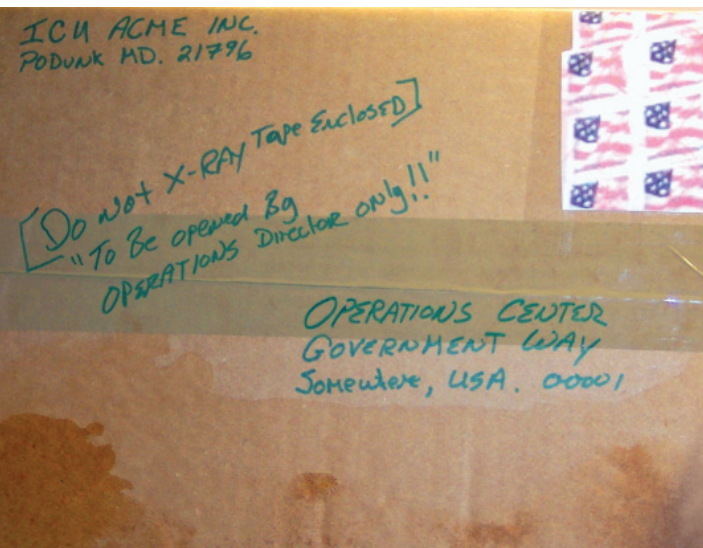 ICU ACME INC.
PODUNK MD. 21796
[Do Not X-RAY Tape Enclosed]
"To Be opened By
OPERATIONS Director only!!"
OPERATIONS CENTER
GOVERNMENT WAY
Somewhere, USA. 00001